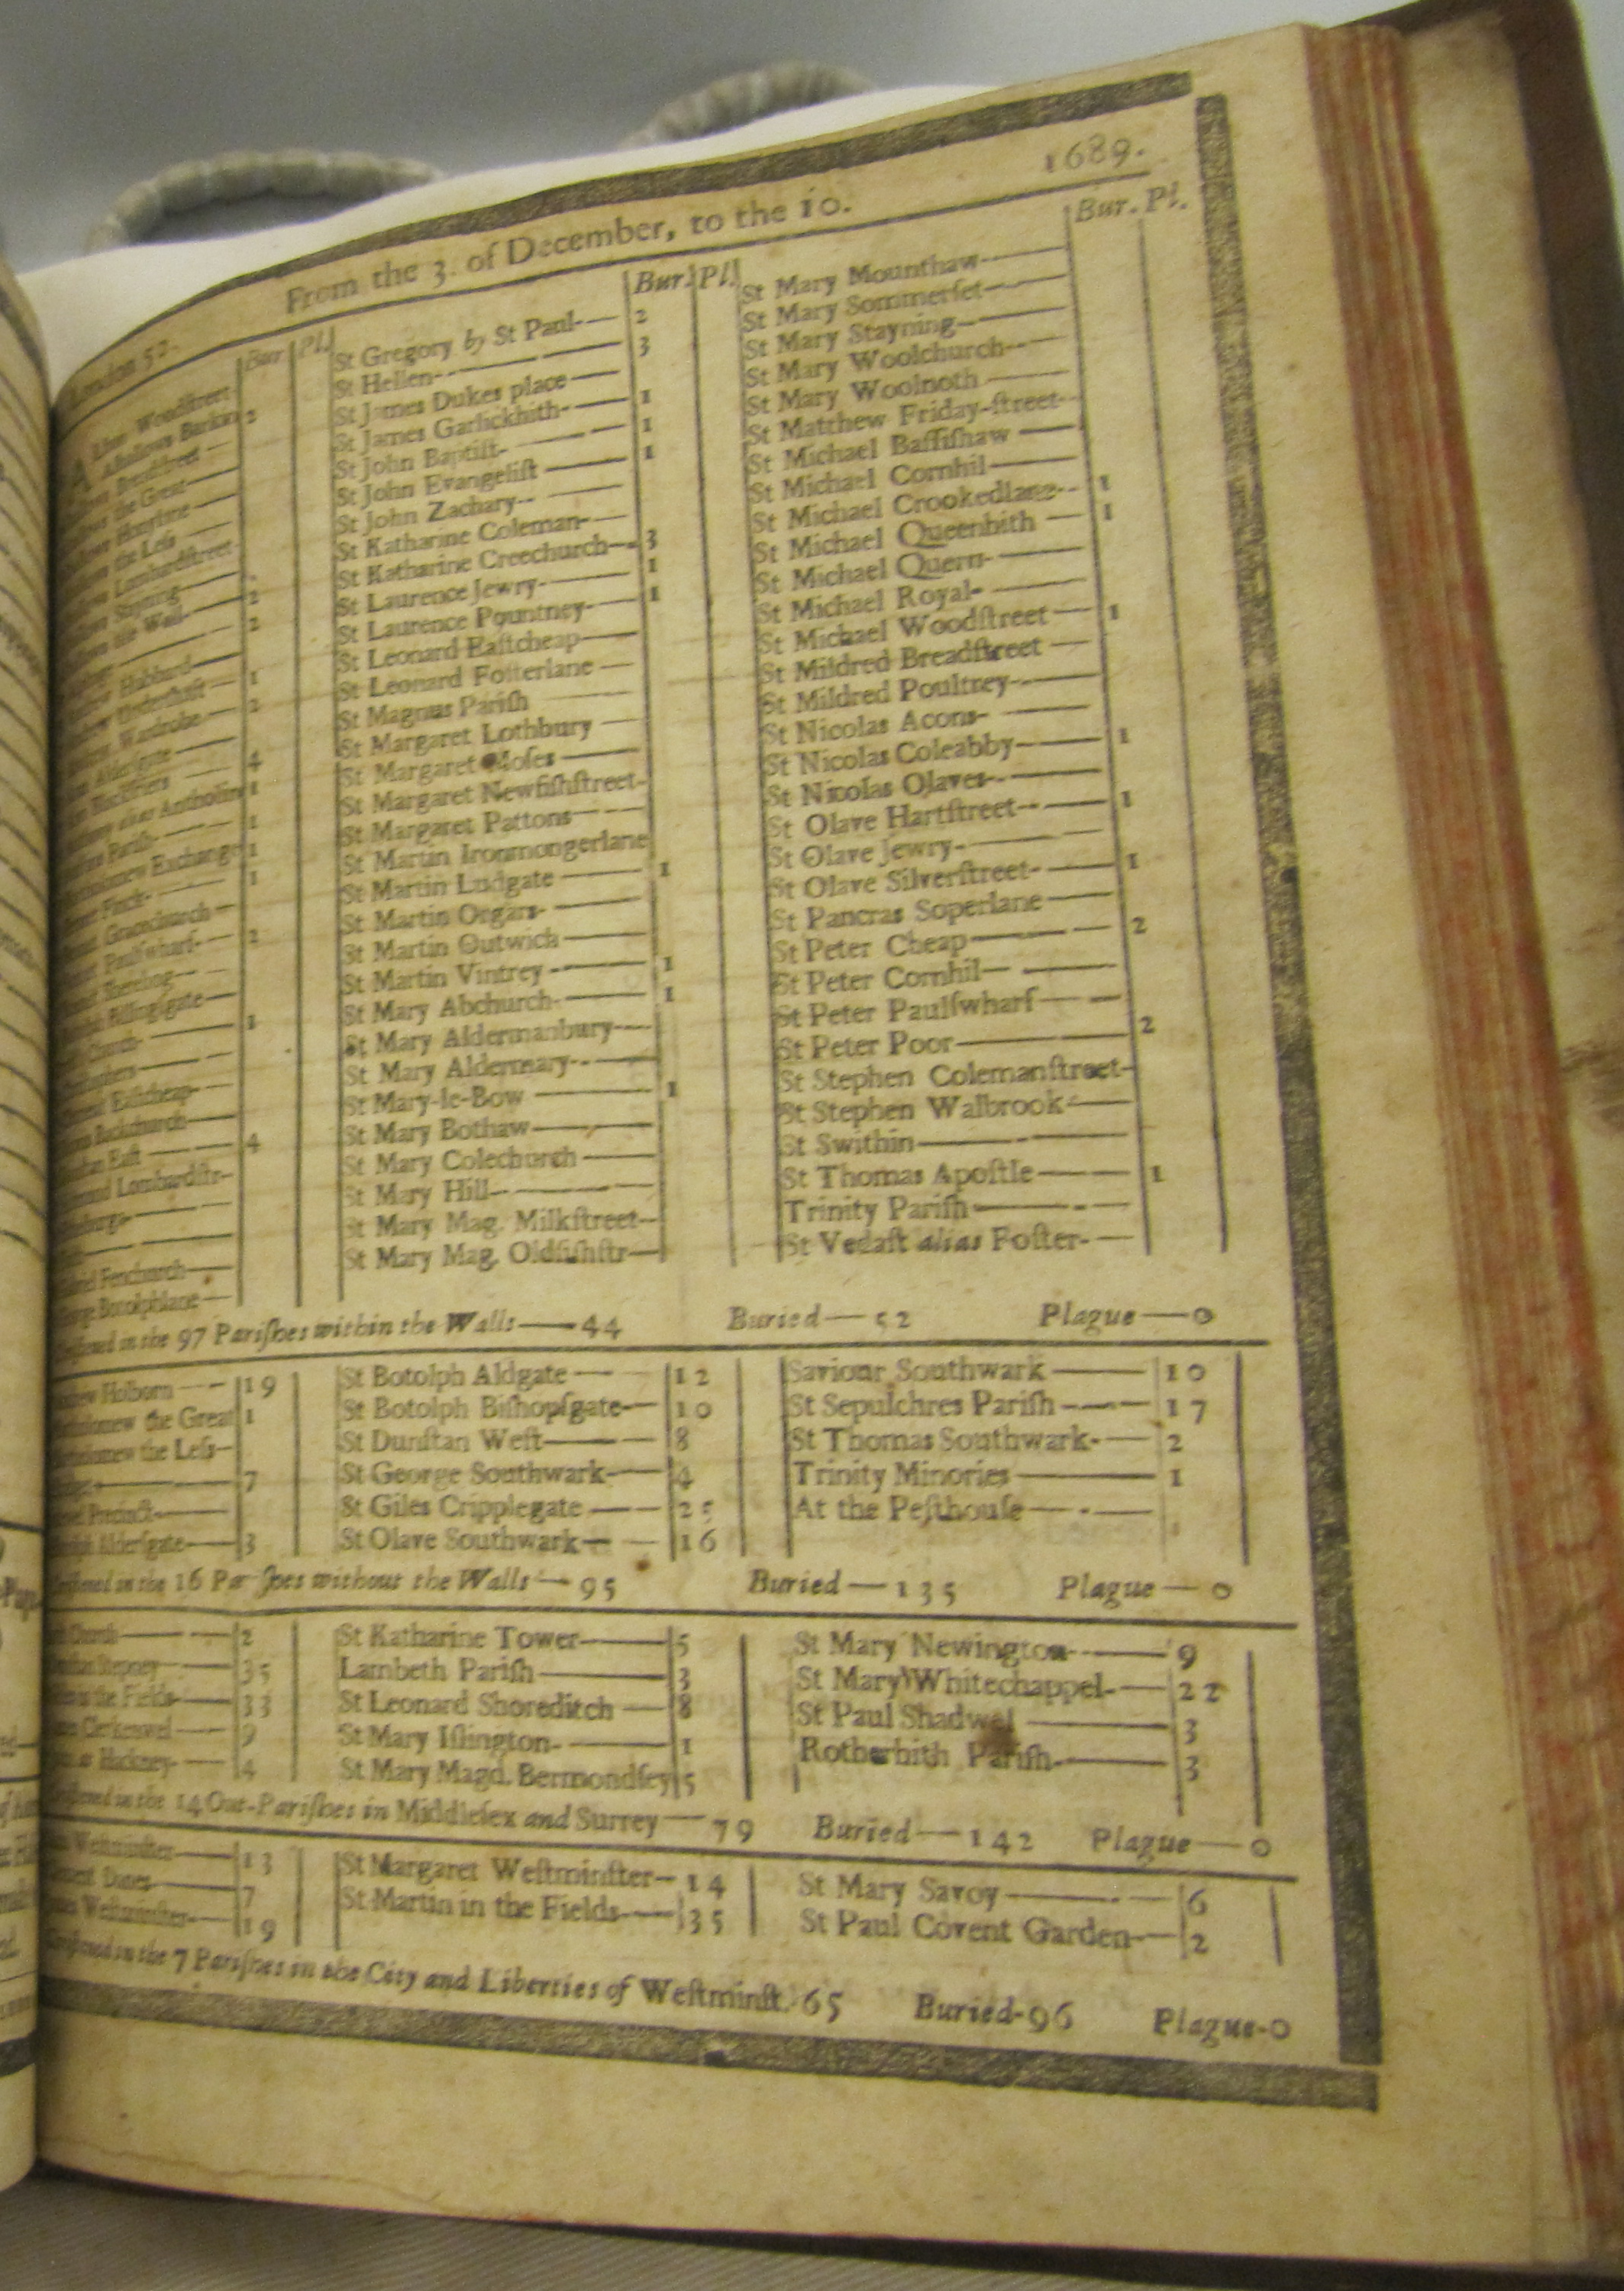 London 52. From the 3. of December, to the 10. 1689.
Bur. Pl.
Woodſtreet
Alhallows Barkin 2
Breadſtreet
the Great
Honylane
the Leſs
Lombardſtreet
Stayning
the Wall 2
2
Hubbard
Underſhaft 1
Wardrobe 2
Alderſgate
Blackfriers 4
alias Antholin 1
Pariſh 1
Exchange 1
Finck 1
Gracechurch
Paulſwharf 2
Billingſgate
Church 1
Eaſtcheap
Backchurch
Eaſt 4
Lombardſtr
Fenchurch
Botolphlane
Bur. Pl.
St Gregory by St Paul 2
St Hellen 3
St James Dukes place
St James Garlickhith 1
St John Baptiſt 1
St John Evangeliſt 1
St John Zachary
St Katharine Coleman
St Katharine Creechurch 3
St Laurence Jewry 1
St Laurence Pountney 1
St Leonard Eaſtcheap
St Leonard Foſterlane
St Magnus Pariſh
St Margaret Lothbury
St Margaret Moſes
St Margaret Newfiſhſtreet
St Margaret Pattons
St Martin Ironmongerlane
St Martin Ludgate 1
St Martin Orgars
St Martin Outwich
St Martin Vintrey 1
St Mary Abchurch 1
St Mary Aldermanbury
St Mary Aldermary
St Mary-le-Bow 1
St Mary Bothaw
St Mary Colechurch
St Mary Hill
St Mary Mag. Milkſtreet
St Mary Mag. Oldfiſhſtr
Bur. Pl.
St Mary Mounthaw
St Mary Sommerſet
St Mary Stayning
St Mary Woolchurch
St Mary Woolnoth
St Matthew Friday-ſtreet
St Michael Baſſiſhaw
St Michael Cornhil
St Michael Crookedlane 1
St Michael Queenhith 1
St Michael Quern
St Michael Royal
St Michael Woodſtreet 1
St Mildred Breadſtreet
St Mildred Poultrey
St Nicolas Acons
St Nicolas Coleabby 1
St Nicolas Olaves
St Olave Hartſtreet 1
St Olave Jewry
St Olave Silverſtreet 1
St Pancras Soperlane
St Peter Cheap 2
St Peter Cornhil
St Peter Paulſwharf
St Peter Poor 2
St Stephen Colemanſtreet
St Stephen Walbrook
St Swithin
St Thomas Apoſtle 1
Trinity Pariſh
St Vedaſt alias Foſter
in the 97 Pariſhes within the Walls—44 Buried—52 Plague—0
Holborn 19
the Great 1
the Leſs
7
Precinct
Alderſgate 3
St Botolph Aldgate 12
St Botolph Biſhopſgate 10
St Dunſtan Weſt 8
St George Southwark 4
St Giles Cripplegate 25
St Olave Southwark 16
Saviour Southwark 10
St Sepulchres Pariſh 17
St Thomas Southwark 2
Trinity Minories 1
At the Peſthouſe
in the 16 Pariſhes without the Walls—95 Buried—135 Plague—0
Church 2
Stepney 35
in the Fields 33
Clerkenwel 9
at Hackney 4
St Katharine Tower 5
Lambeth Pariſh 3
St Leonard Shoreditch 8
St Mary Iſlington 1
St Mary Magd. Bermondſey 5
St Mary Newington 9
St Mary Whitechappel 22
St Paul Shadwel 3
Rotherhith Pariſh 3
in the 14 Out-Pariſhes in Middleſex and Surrey—79 Buried—142 Plague—0
Weſtminſter 13
Danes 7
Weſtminſter 19
St Margaret Weſtminſter 14
St Martin in the Fields 35
St Mary Savoy 6
St Paul Covent Garden 2
in the 7 Pariſhes in the City and Liberties of Weſtminſt. 65 Buried-96 Plague-0